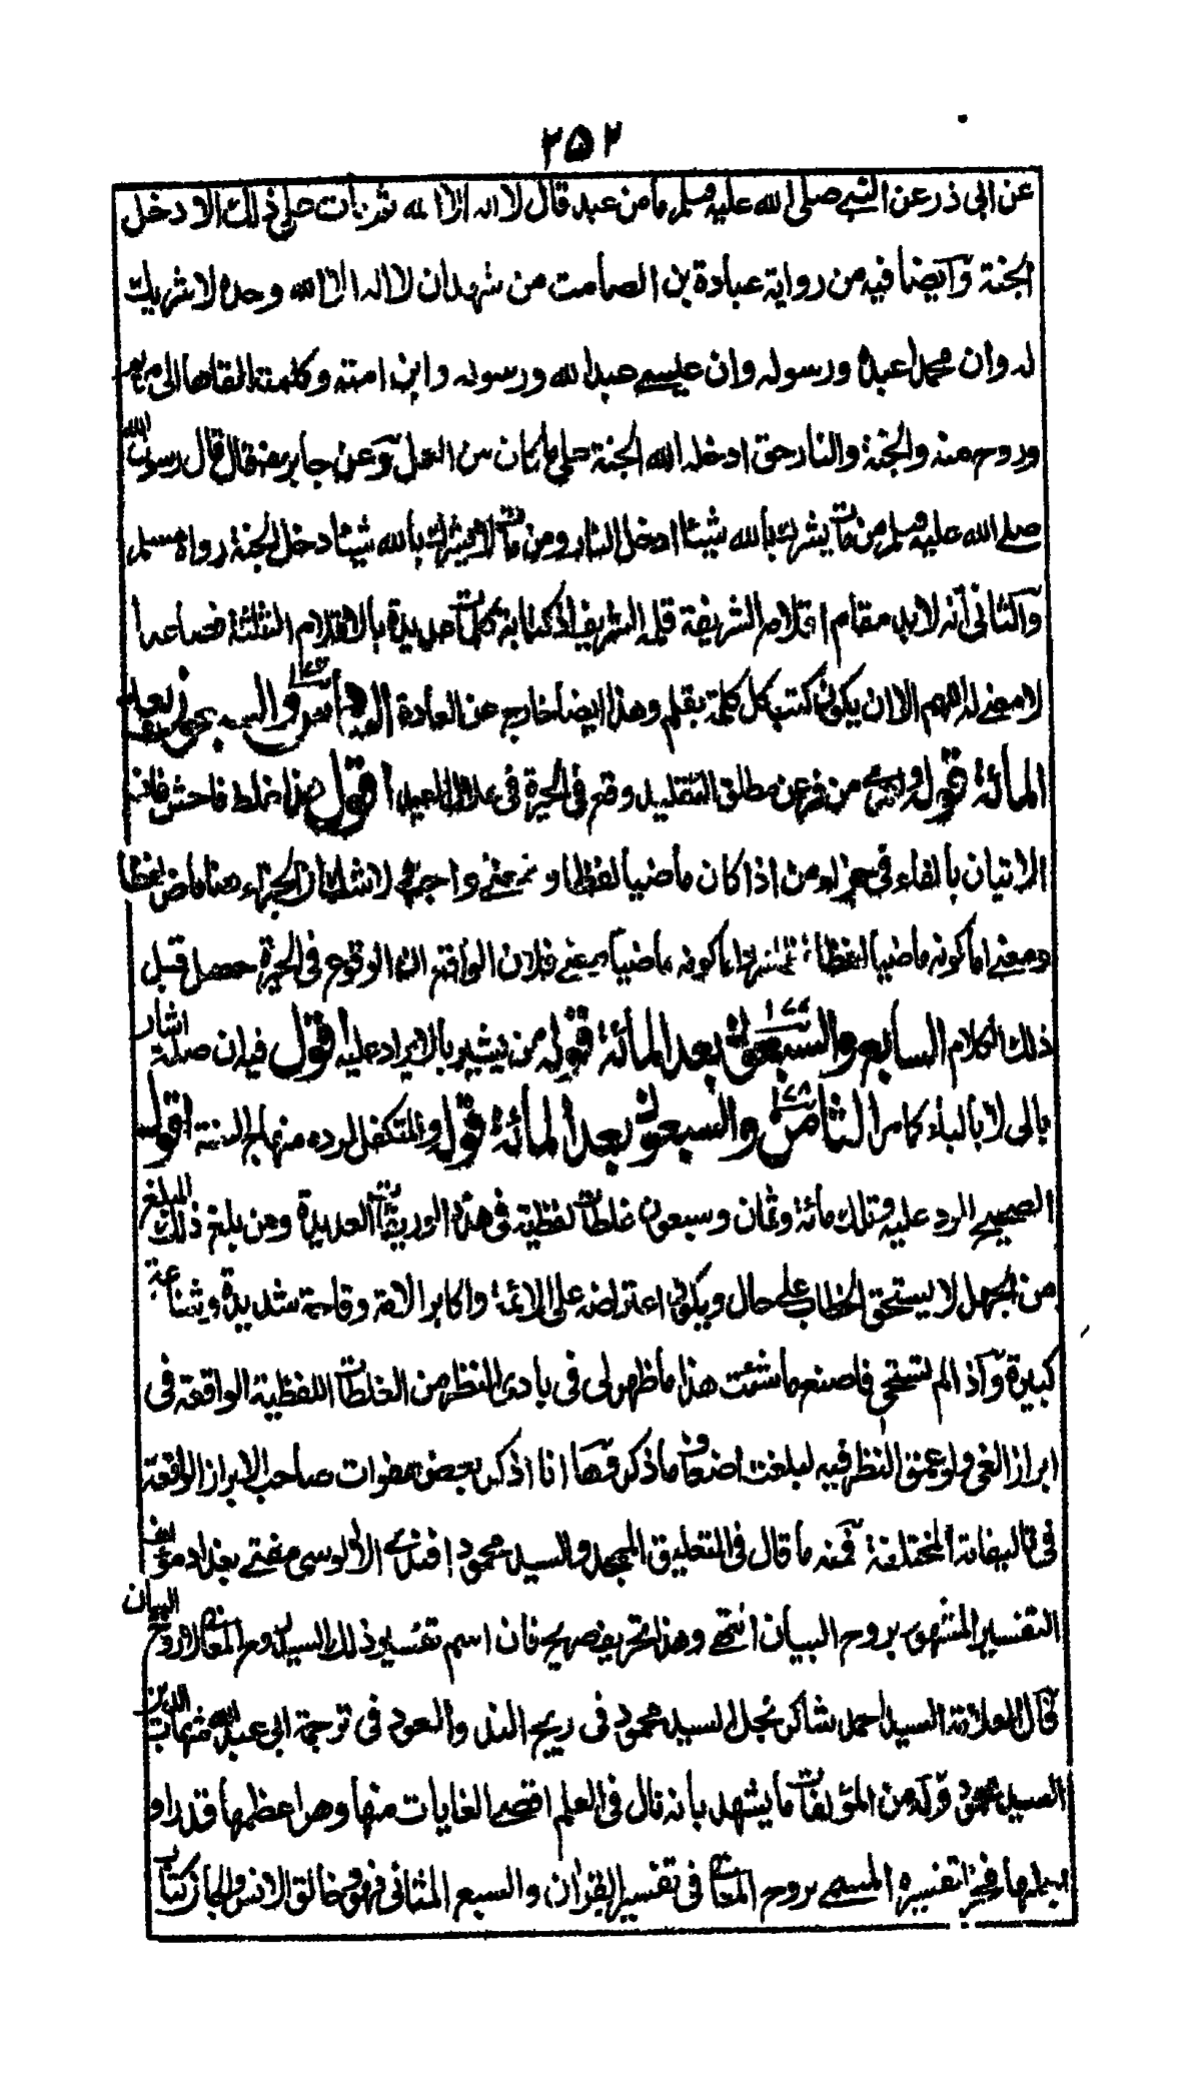 ٢٥٢
عن ابى ذر عن النبى صلى الله عليه وسلم ما من عبد قال لا اله الا الله ثم مات على ذلك الا دخل
الجنة وايضا فيه من رواية عبادة بن الصامت من شهد ان لا اله الا الله وحده لا شريك
له وان محمدا عبده ورسوله وان عيسى عبد الله ورسوله وابن امته وكلمته القاها الى مريم
وروح منه والجنة والنار حق ادخله الله الجنة على ما كان من العمل وعن جابر رض قال قال رسول الله
صلى الله عليه وسلم من مات يشرك بالله شيئا دخل النار ومن مات لا يشرك بالله شيئا دخل الجنة رواه مسلم
والثانى انه لا بد مقام اقلامه الشريفة قلمه الشريف اذ كتابة كلمات عديدة بالاقلام الثلثة فصاعدا
لا معنى له اللهم الا ان يكون كتب كل كلمة بقلم وهذا ايضا خارج عن العادة السادس والسبعون بعد
المائة قوله من فر عن مطلق التقليد وقع فى الحيرة فى اقول هذا غلط فاحش فانه
الاتيان بالفاء فى جزاء من اذا كان ماضيا لفظا و معنى واجب لا شك ان الجزاء هنا ماض لفظا
ومعنى اما كونه ماضيا لفظا واما كونه ماضيا معنى فلان الواقع ان الوقوع فى الحيرة حصل قبل
ذلك الكلام السابع والسبعون ١٧٧ بعد المائة قوله من يشير بالايراد عليه اقول فيه ان صلة اشار
بالى لا بالباء كما مر الثامن والسبعون ١٧٨ بعد المائة قوله والمتكفل لرده منهاج السنة اقول
الصحيح الرد عليه وتلك مائة وثمان وسبعون غلطات لفظية فى هذه الوريقات العديدة ومن بلغ ذلك المبلغ
من الجهل لا يستحق الخطاب على حال ويكون اعتراضه على الائمة واكابر الامة وقاحة شديدة وشناعة
كبيرة واذا لم تستحى فاصنع ما شئت هذا ما ظهر لى فى بادى النظر من الغلطات اللفظية الواقعة فى
ابراز الغى ولو عمق النظر فيه لبلغت اضعاف ما ذكر وها انا اذكر بعض هفوات صاحب الابراز الواقعة
فى تاليفاته المختلفة فمنه ما قال فى التعليق الممجد والسيد محمود افندى الالوسى مفتى بغداد مؤلف
التفسير المشهور بروح البيان انتهى وهذا تحريف صريح فان اسم تفسير ذلك السيد روح المعانى لا روح البيان
قال العلامة السيد احمد شاكر نجل السيد محمود فى ريح الند والعود فى ترجمة ابى عبد الله شهاب الدين
السيد محمود وله من المؤلفات ما يشهد بانه نال فى العلم اقصى الغايات منها وهو اعظمها قدرا و
تفسيره المسمى بروح المعانى فى تفسير القران والسبع المثانى فهو وخالق الانس والجان كتاب